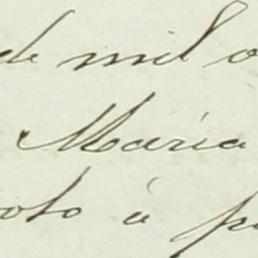 de mil o
Maria
oto á p